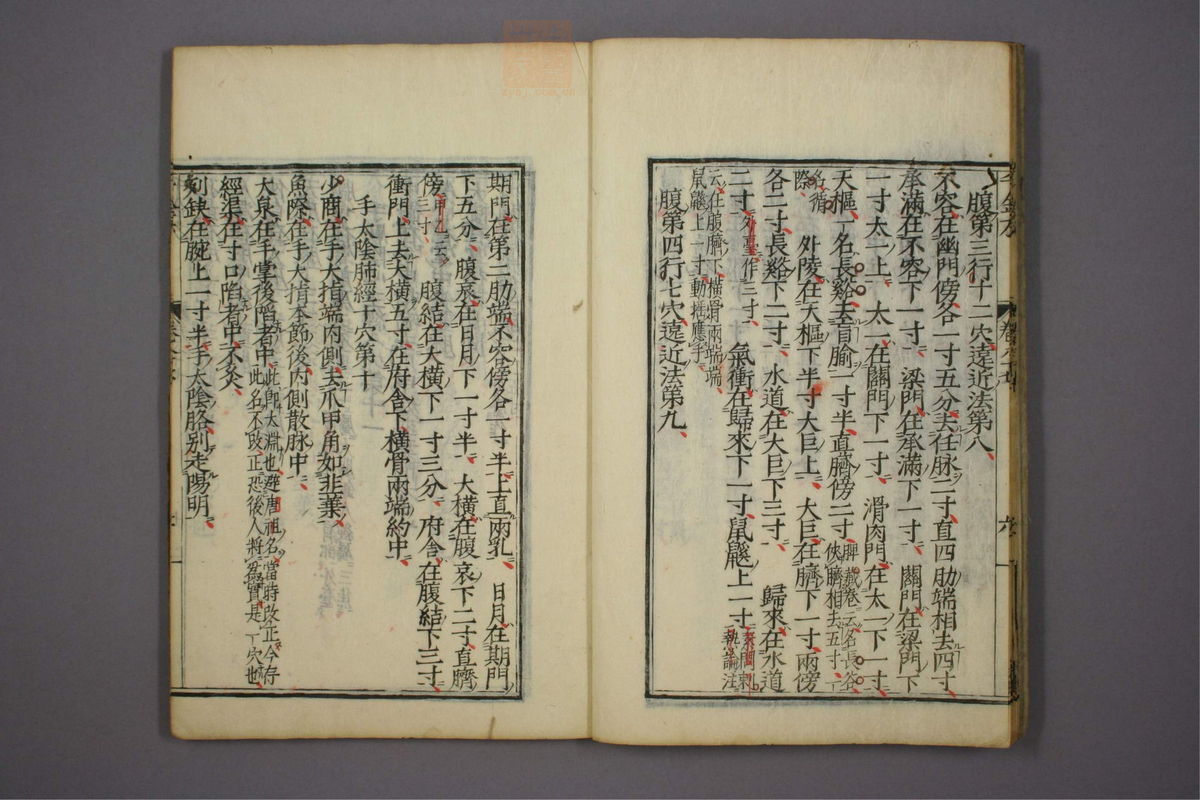 腹第三行十二穴遠近法第八
不容在幽門傍各一寸五分去任脉二寸直四肋端相去四寸
承滿在不容下一寸 梁門在承滿下一寸 關門在梁門下
一寸太一上 太一在關門下一寸 滑肉門在太一下一寸
天樞一名長谿去肓腧一寸半直臍傍二寸 脾藏卷云名長谷俠臍相去五寸一
名循際 外陵在天樞下半寸大巨上 大巨在臍下一寸兩傍
各二寸長谿下二寸 水道在大巨下三寸 歸來在水道
二寸 外臺作三寸 氣衝在歸來下一寸鼠鼷上一寸 素問刺熱論注
云在腹臍下橫骨兩端端鼠鼷上一寸動脉應手
腹第四行七穴遠近法第九
期門在第二肋端不容傍各一寸半上直兩乳 日月在期門
下五分 腹哀在日月下一寸半 大橫在腹哀下二寸直臍
傍 甲乙云三寸 腹結在大橫下一寸三分 府舍在腹結下三寸
衝門上去大橫五寸在府舍下橫骨兩端約中
手太陰肺經十穴第十
少商在手大指端內側去爪甲角如韭葉
魚際在手大指本節後內側散脉中
大泉在手掌後陷者中 此即太淵也避唐祖名當時改正今存此名不改正恐後人將爲別是一穴也
經渠在寸口陷者中不灸
列缺在腕上一寸半手太陰胳別走陽明